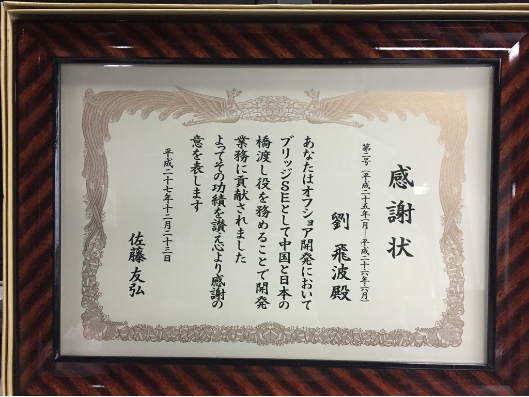 感謝状
第二号(平成二十五年一月―平成二十六年六月)
劉 飛波殿
あなたはオフショア開発において
ブリッジSEとして中国と日本の
橋渡し役を務めることで開発
業務に貢献されました
よってその功績を讃え心より感謝の
意を表します
平成二十七年十二月二十三日
佐藤 友弘